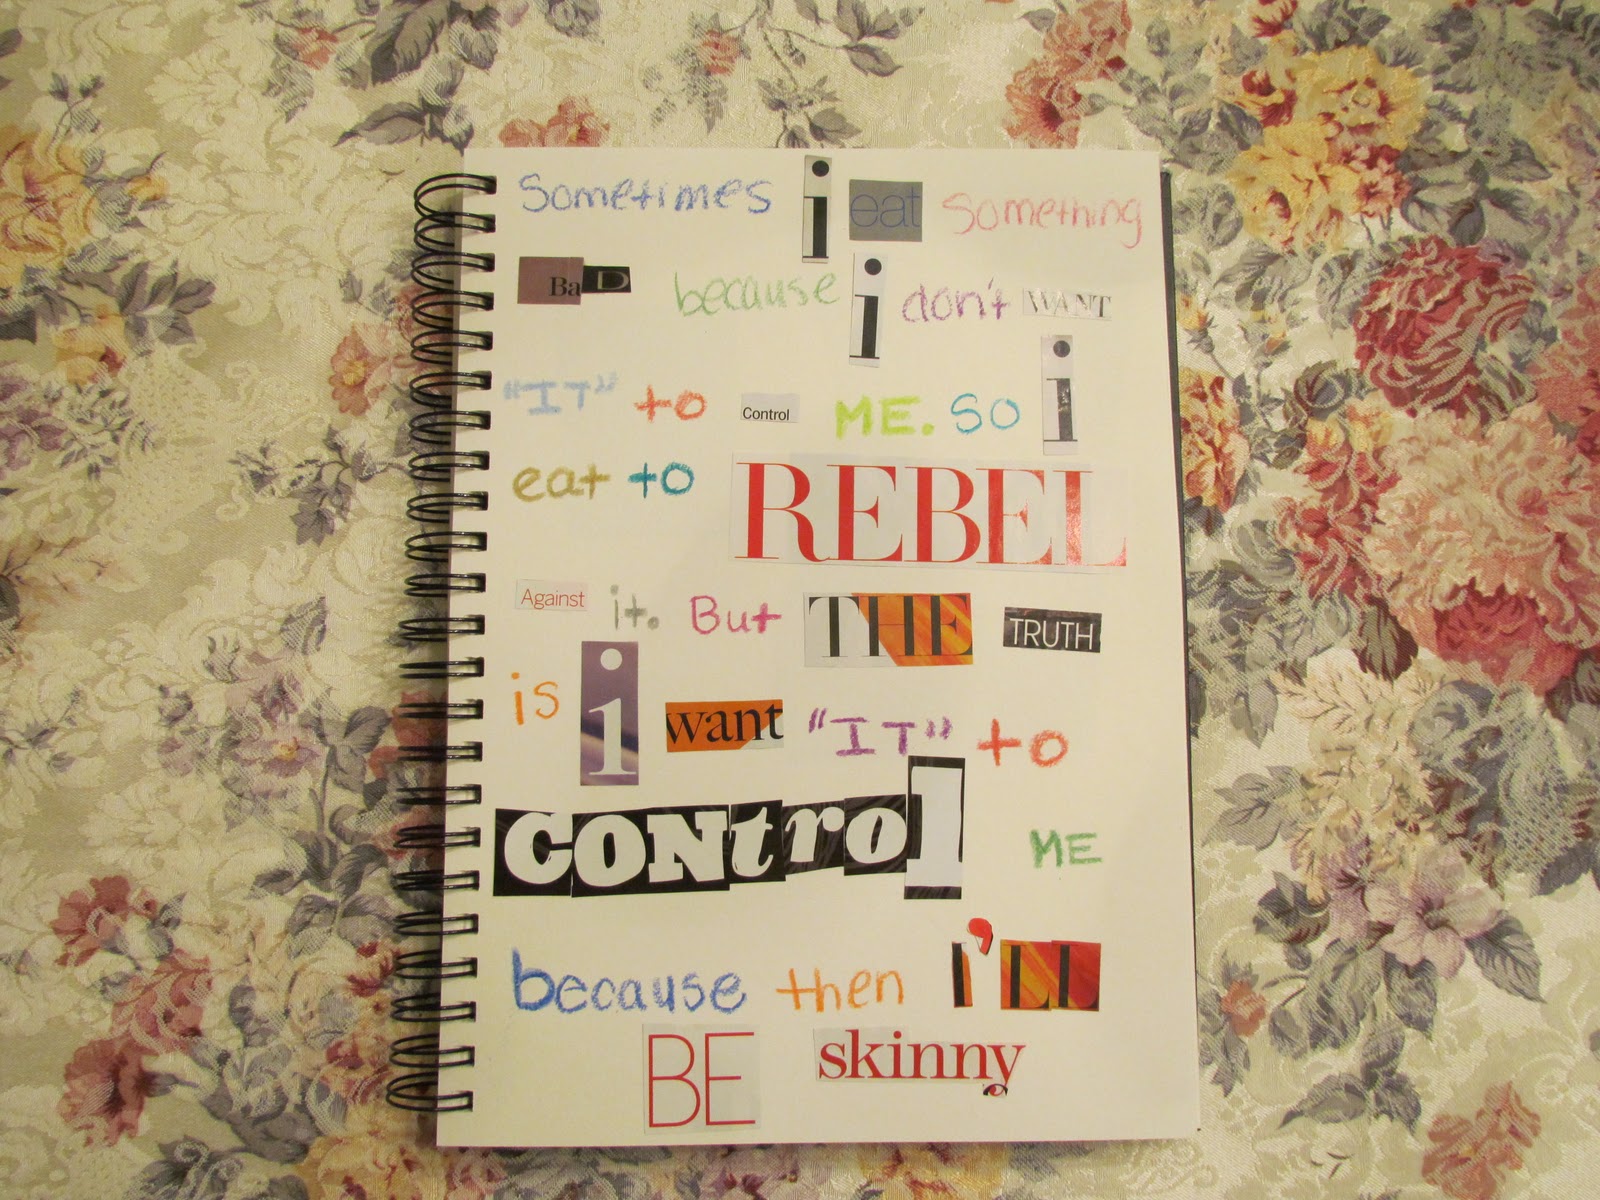 Sometimes i eat something
BaD because i don't WANT
"IT" to Control ME. SO i
eat to REBEL
Against it. But THE TRUTH
is i want "IT" to
CONtrol ME
because then I'LL
BE skinny